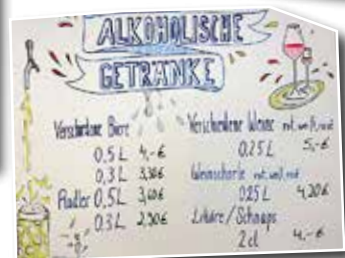 ALKOHOLISCHE
GETRÄNKE
Verschiedene Biere
0,5 L 4,-€
0,3 L 3,30€
Radler 0,5 L 3,60€
0,3 L 2,50€
Verschiedene Weine rot, weiß, rosé
0,25 L 5,-€
Weinschorle rot, weiß, rosé
0,25 L 4,20€
Liköre / Schnaps
2cl 4,-€